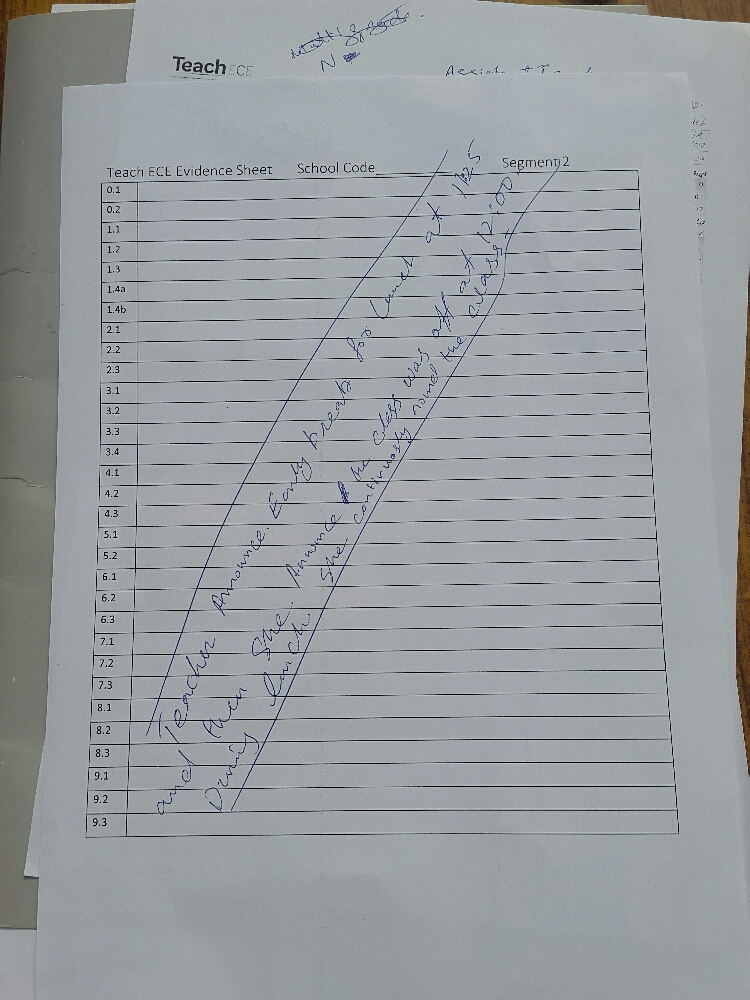 Teach ECE
Teach ECE Evidence Sheet School Code Segment 2
0.1
0.2
1.1
1.2
1.3
1.4a
1.4b
2.1
2.2
2.3
3.1
3.2
3.3
3.4
4.1
4.2
4.3
5.1
5.2
6.1
6.2
6.3
7.1
7.2
7.3
8.1
8.2
8.3
9.1
9.2
9.3
Teacher Announce. Early break for Lunch at
and then she Announce the class was off at 12:00
During lunch she continuosly round the class.